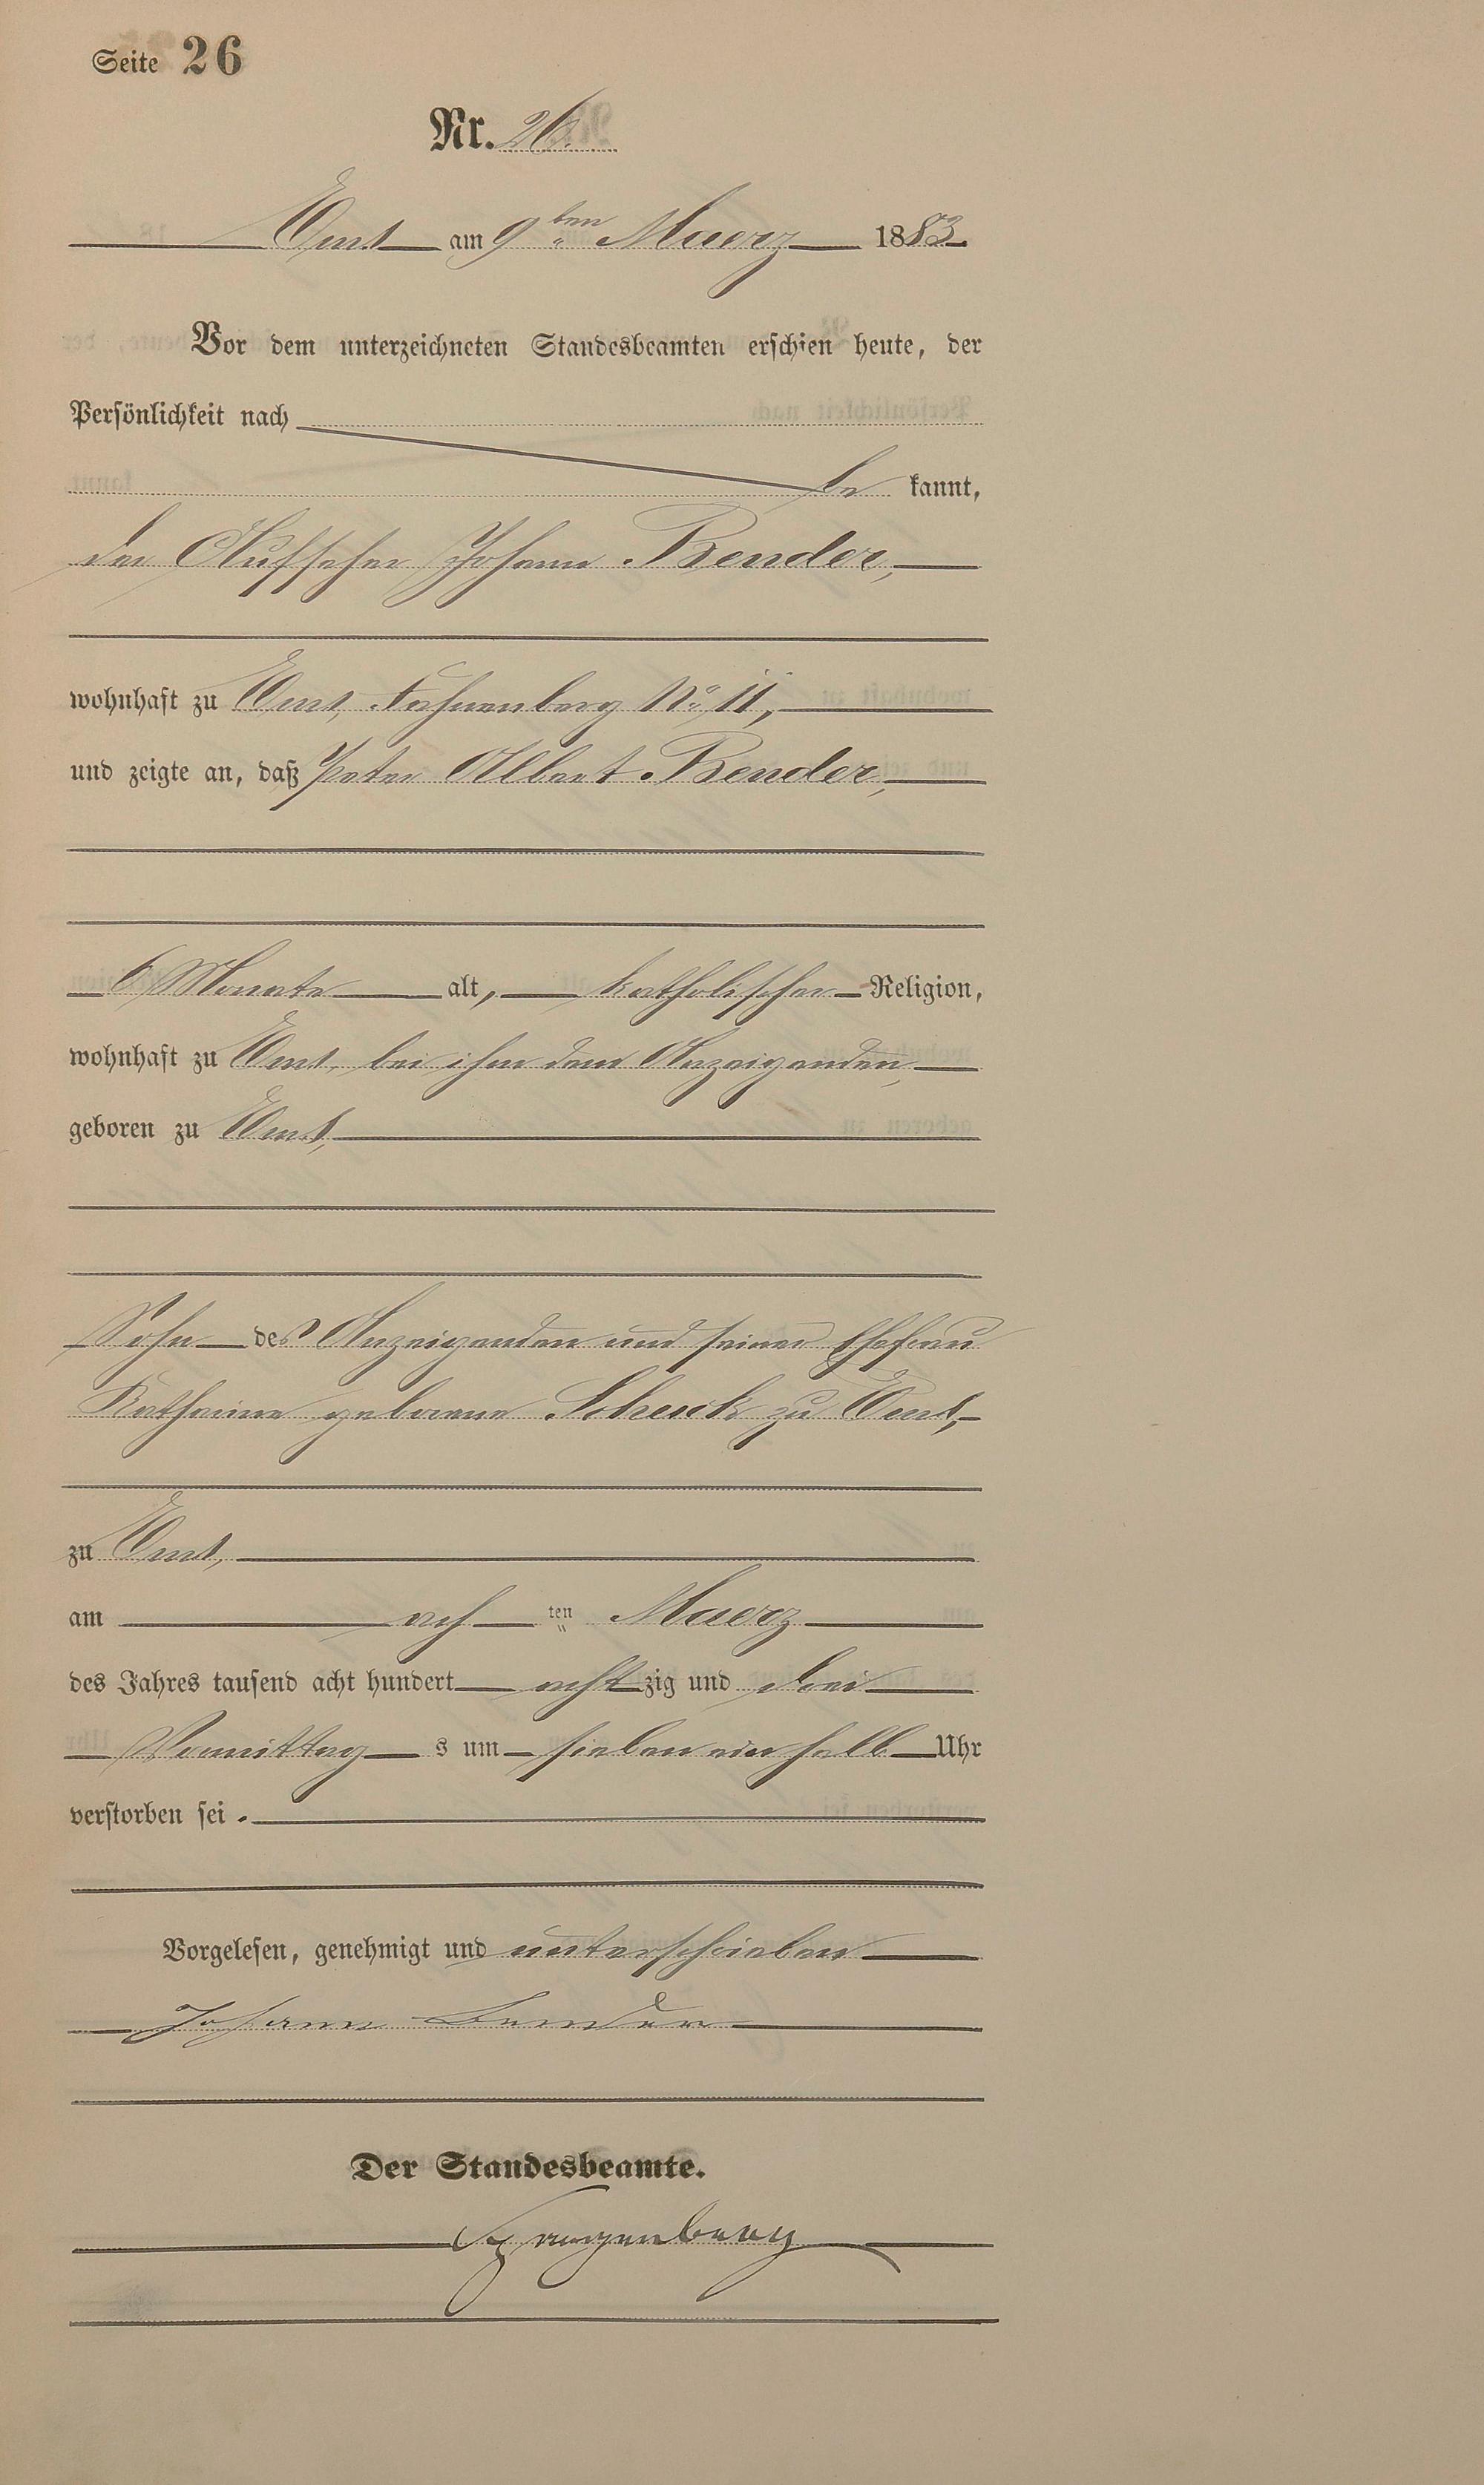 Seite 26
Nr. 26.
Ems am 9ten Maerz 1883.
Vor dem unterzeichneten Standesbeamten erschien heute, der
Persönlichkeit nach
be kannt,
der Aufseher Johann Bender,
wohnhaft zu Ems, No 11,
und zeigte an, daß Peter Albert Bender,
6 Monate alt, katholischer Religion,
wohnhaft zu Ems, bei ihm dem Anzeigenden,
geboren zu Ems,
Sohn des Anzeigenden und seiner Ehefrau
Katharine geborene Schenck zu Ems,
zu Ems,
am ach ten Maerz
des Jahres tausend acht hundert acht zig und drei
Vormittag s um sieben ein halb Uhr
verstorben sei.
Vorgelesen, genehmigt und unterschrieben
Johann Bender
Der Standesbeamte.
Spangenberg